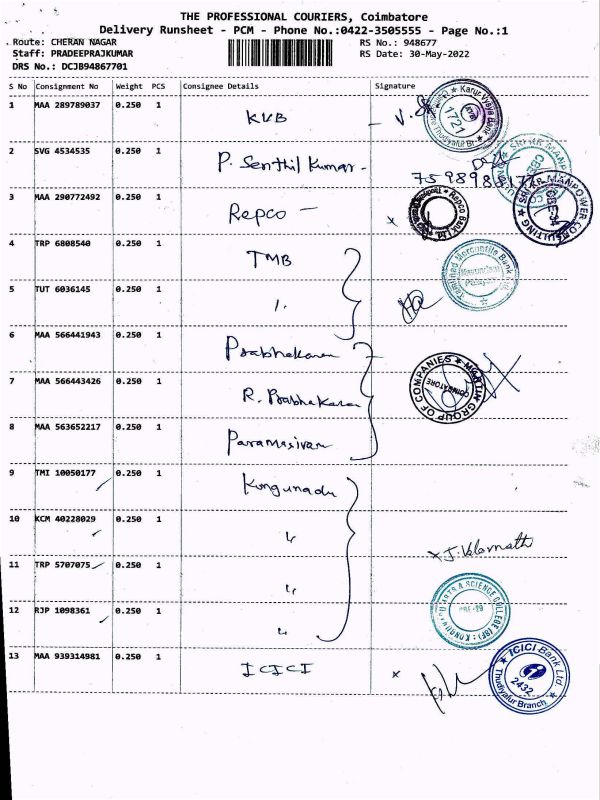 THE PROFESSIONAL COURIERS, Coimbatore
Delivery Runsheet - PCM - Phone No.:0422-3505555 - Page No.:1
Route: CHERAN NAGAR RS No.: 948677
Staff: PRADEEPRAJKUMAR RS Date: 30-May-2022
DRS No.: DCJB94867701
S No Consignment No Weight PCS Consignee Details Signature
1 MAA 289789037 0.250 1 KVB
Karur Vysya Bank 1721
2 SVG 4534535 0.250 1 P. Senthil Kumar
7598988177
MANPOWER CONSULTING
3 MAA 290772492 0.250 1 Repco
Repco Bank Ltd.
4 TRP 6808540 0.250 1 TMB
Tamilnad Mercantile Bank Ltd
5 TUT 6036145 0.250 1
6 MAA 566441943 0.250 1 Prabhakaran
MARTIN GROUP OF COMPANIES COIMBATORE
7 MAA 566443426 0.250 1 R. Prabhakaran
8 MAA 563652217 0.250 1 Paramasivam
9 TMI 10050177 0.250 1 Kongunadu
10 KCM 40228029 0.250 1 "
11 TRP 5707075 0.250 1 "
12 RJP 1098361 0.250 1 "
ARTS & SCIENCE COLLEGE
13 MAA 939314981 0.250 1 ICICI
ICICI Bank Ltd. 2432 Thudiyalur Branch